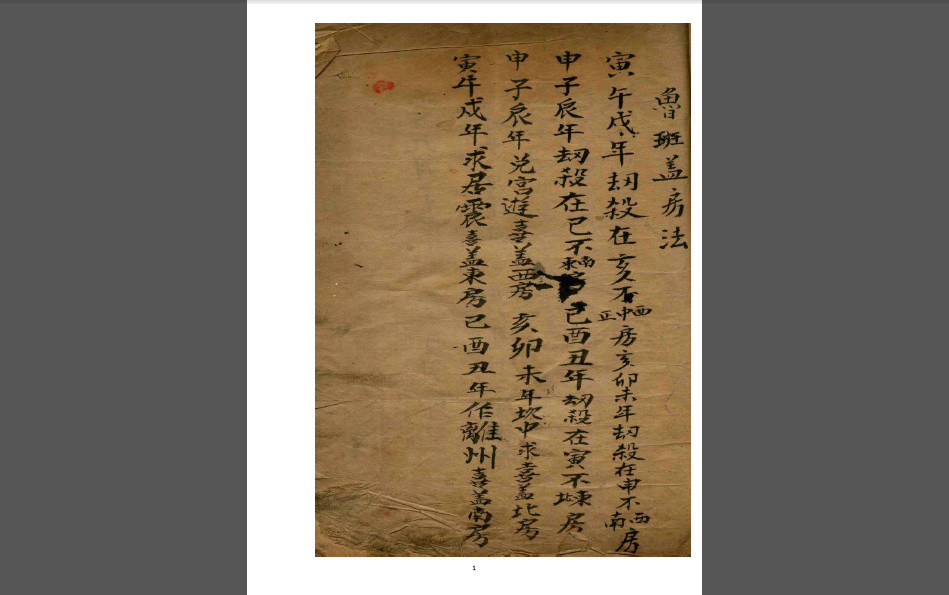 魯班盖房法
寅午戌年劫殺在亥不西中正房亥卯未年劫殺在申不西南房
申子辰年劫殺在巳不南東巳酉丑年劫殺在寅不東北房
申子辰年兑宮遊喜盖西房亥卯未年坎中求喜盖北房
寅午戌年求居震喜盖東房巳酉丑年作離州喜盖南房
1